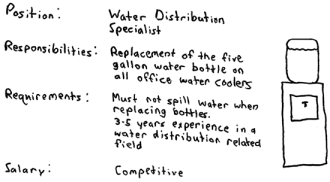 Position: Water Distribution
Specialist
Responsibilities: Replacement of the five
gallon water bottle on
all office water coolers
Requirements: Must not spill water when
replacing bottles.
3-5 years experience in a
water distribution related
field
Salary: Competitive